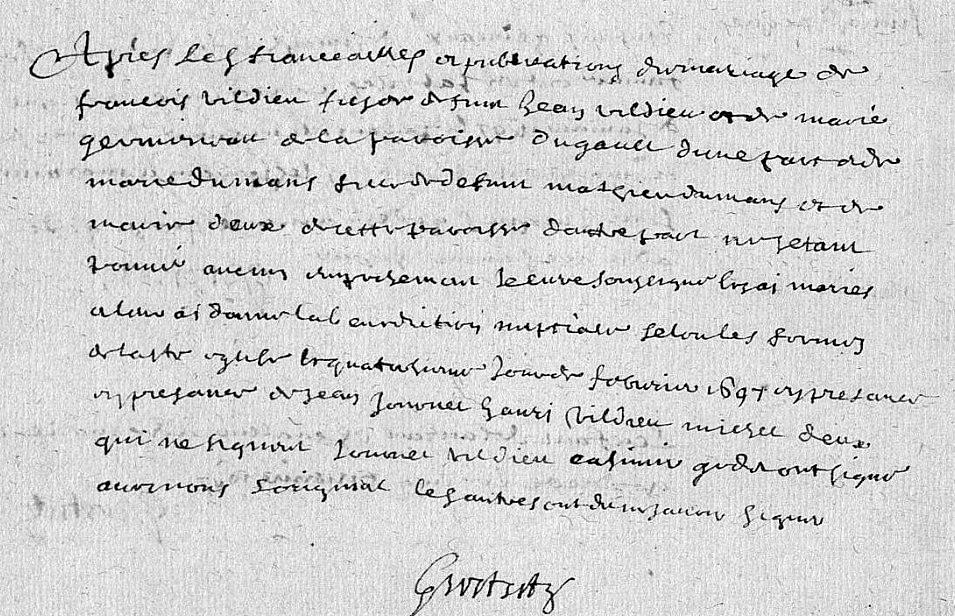 Apres les fiancailles et publications du mariage de
francois vildieu fils de defunt Jean vildieu et de marie
de la paroisse du gault dune part et de
marie dumans fille de defunt mathieu dumans et de
marie deux de cette paroisse dautre part ne setant
trouvé aucun empeschement le curé soussigné les ai mariés
et leur ai donné la benediction nuptiale selon les formes
de la ste eglise le quatorzieme jour de febvrier 1697 en presance
en presance de Jean Jouvnet hanri vildieu michel deux
qui ne signent Jouvnet vildieu casimir godet ont signé
avec nous loriginal les autres ont dit ne savoir signer